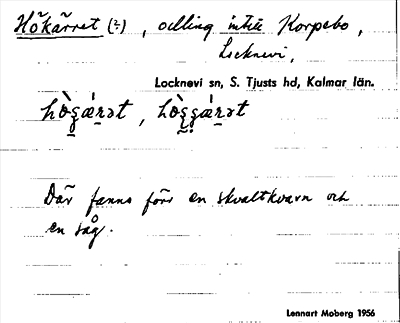 Hökärret (?), odling intill Korpebo,
Locknevi,
Locknevi sn, S. Tjusts hd, Kalmar län.
Där fanns förr en skvaltkvarn och
en såg.
Lennart Moberg 1956